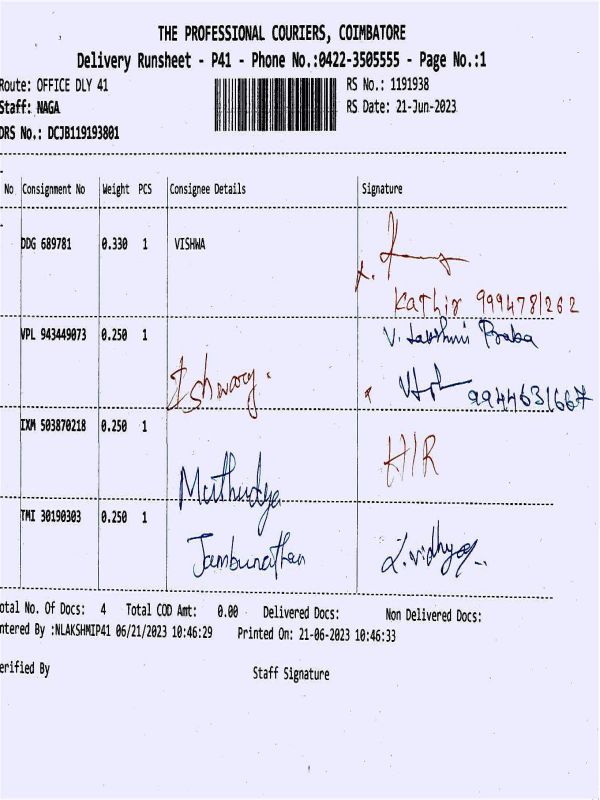 THE PROFESSIONAL COURIERS, COIMBATORE
Delivery Runsheet - P41 - Phone No.:0422-3505555 - Page No.:1
Route: OFFICE DLY 41 RS No.: 1191938
Staff: NAGA RS Date: 21-Jun-2023
DRS No.: DCJB119193801
No Consignment No Weight PCS Consignee Details Signature
DDG 689781 0.330 1 VISHWA
Kathir 9994781262
VPL 943449073 0.250 1 V. Lakshmi Praba
9944631667
IXM 503870218 0.250 1 H/R
TMI 30190303 0.250 1
Jambunathan
otal No. Of Docs: 4 Total COD Amt: 0.00 Delivered Docs: Non Delivered Docs:
ntered By :NLAKSHMIP41 06/21/2023 10:46:29 Printed On: 21-06-2023 10:46:33
erified By Staff Signature